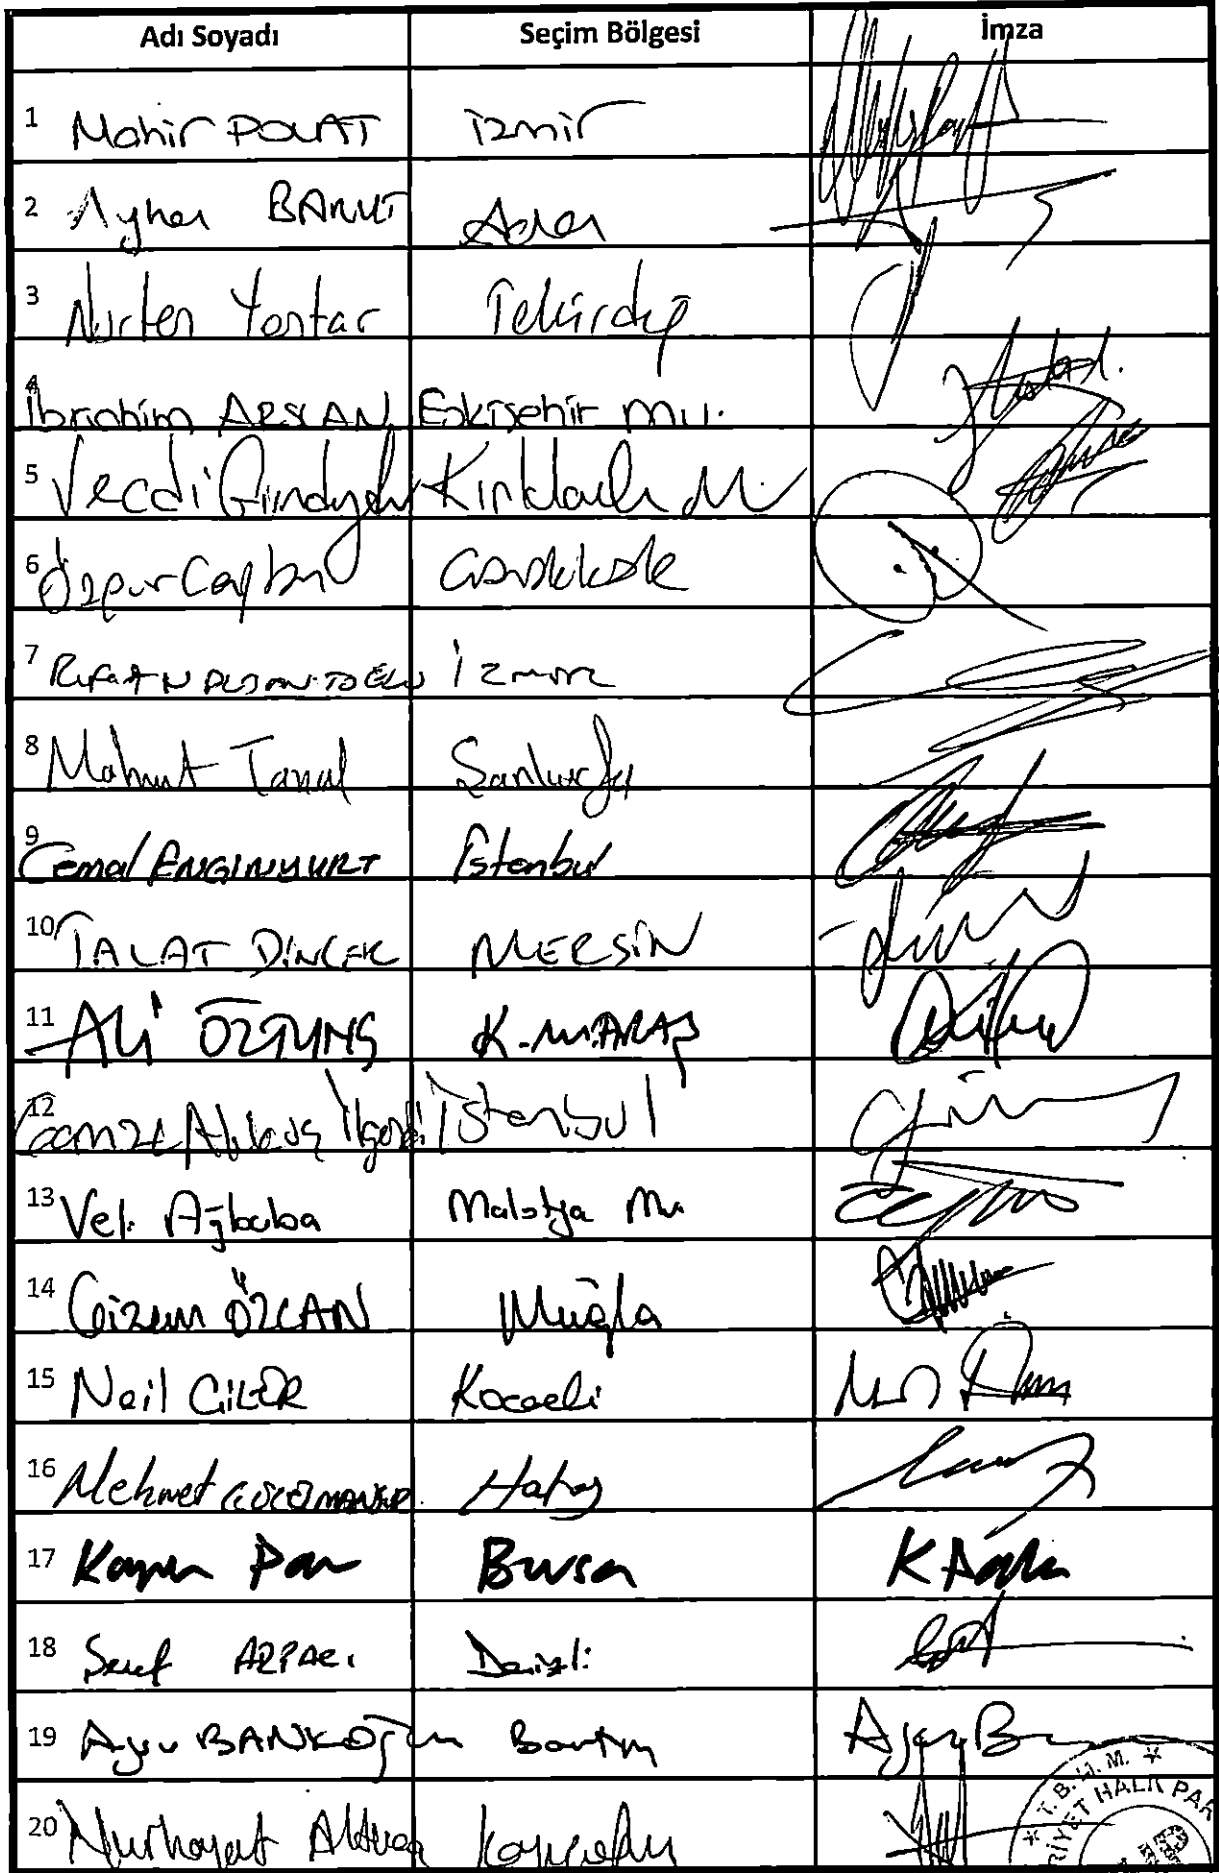 Adı Soyadı Seçim Bölgesi İmza
1 Mahir POLAT İzmir
2 Ayhan BARUT Adana
3 Nurten Yontar Tekirdağ
4 İbrahim ARSLAN Eskişehir Mv.
5 Vecdi Gündoğdu Kırklareli M
6 Özgür Ceylan Çanakkale
7 Rıfat NALBANTOĞLU İzmir
8 Mahmut Tanal Şanlıurfa
9 Cemal ENGİNYURT İstanbul
10 TALAT DİNÇER MERSİN
11 ALİ ÖZTUNÇ K.MARAŞ
12 Gamze Akkuş İlgezdi İstanbul
13 Veli Ağbaba Malatya Mv.
14 Gizem ÖZCAN Muğla
15 Nail ÇİLER Kocaeli
16 Mehmet GÜZELMANSUR Hatay
17 Kayıhan Pala Bursa K
18 Şeref ARPACI Denizli
19 Aysu BANKOĞLU Bartın Aysu B
20 Nurhayat Altaca Kayışoğlu
* T.B.M.M. *
RİYET HALK PAR